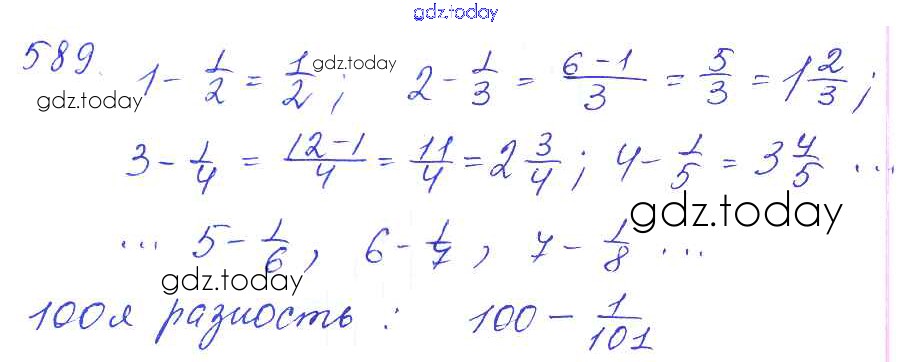 gdz.today
589. 1 - 1/2 = 1/2; gdz.today 2 - 1/3 = (6-1)/3 = 5/3 = 1 2/3;
gdz.today
3 - 1/4 = (12-1)/4 = 11/4 = 2 3/4; 4 - 1/5 = 3 4/5 ...
gdz.today
... 5 - 1/6, 6 - 1/7, 7 - 1/8 ...
gdz.today
100я разность: 100 - 1/101